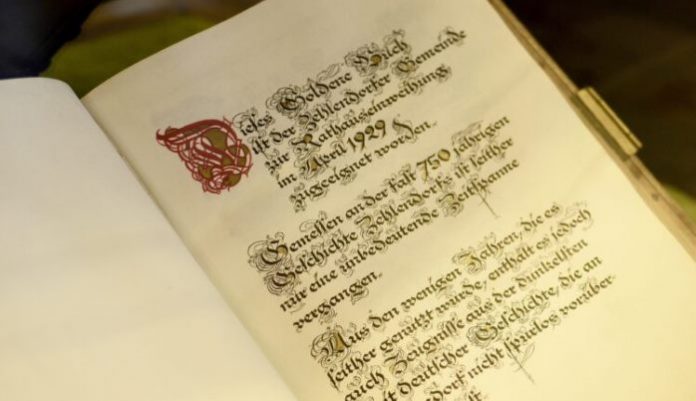 Dieses Goldene Buch
ist der Zehlendorfer Gemeinde
zur Rathauseinweihung
im April 1929
zugeeignet worden.
Gemessen an der fast 750 jährigen
Geschichte Zehlendorfs ist seither
nur eine unbedeutende Zeitspanne
vergangen.
Aus den wenigen Jahren, die es
seither genutzt wurde, enthält es jedoch
auch Zeugnisse aus der dunkelsten
Zeit deutscher Geschichte, die an
Zehlendorf nicht spurlos vorüber